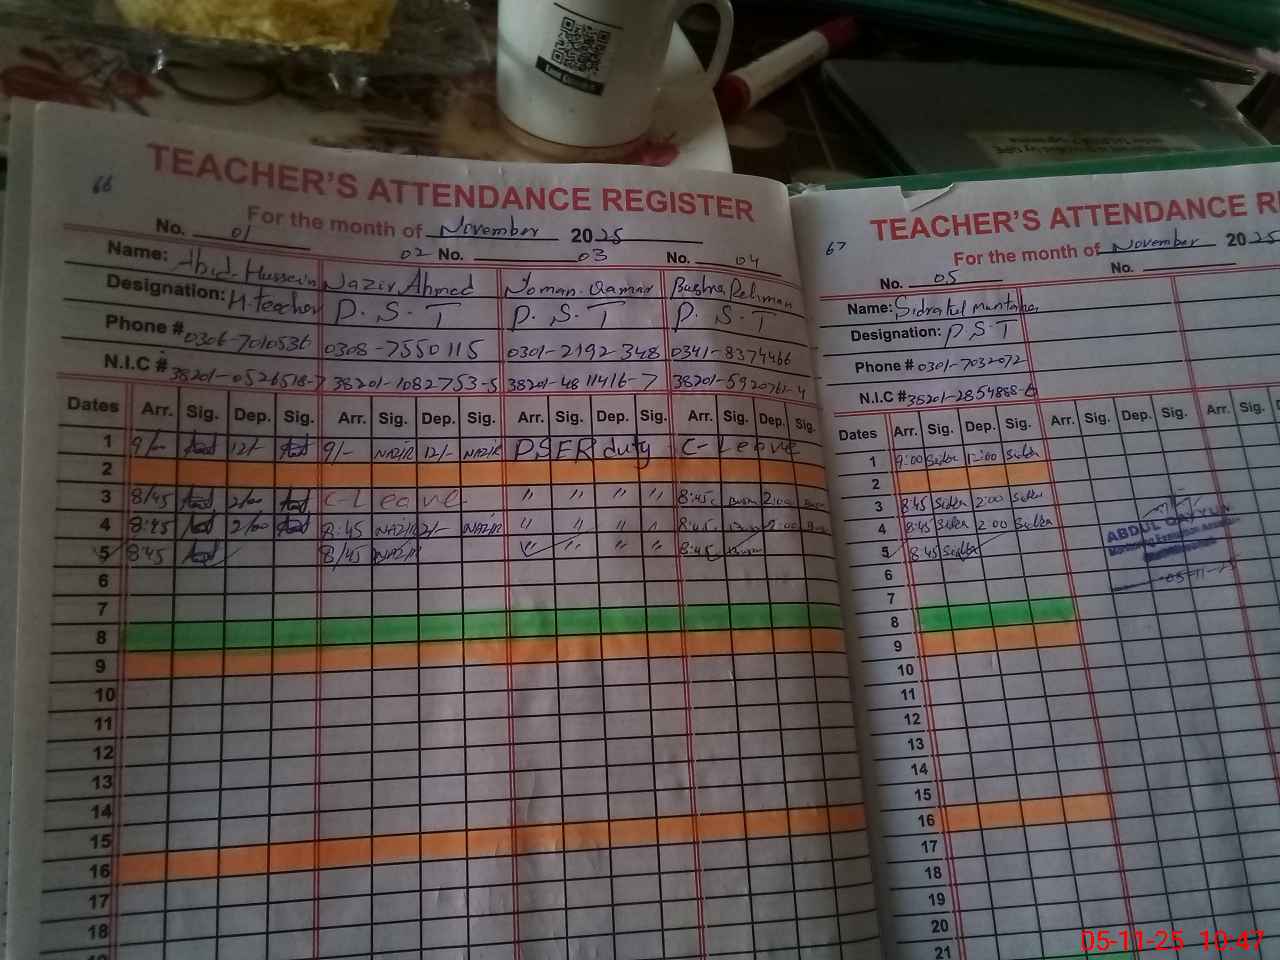 66
TEACHER'S ATTENDANCE REGISTER
For the month of November 2025
No. 01 02 No. 03 No. 04
Name: Abid Hussein Nazir Ahmed Noman Qamar Bushra Rehman
Designation: H.teacher P.S.T P.S.T P.S.T
Phone # 0306-7010536 0308-7550115 0301-2192348 0341-8374466
N.I.C # 38201-0526518-7 38201-1082753-5 38201-4811416-7 38201-5920761-4
Dates Arr. Sig. Dep. Sig. Arr. Sig. Dep. Sig. Arr. Sig. Dep. Sig. Arr. Sig. Dep. Sig.
1 9/- 12/- 9/- NAZIR 12/- NAZIR PSER duty C-Leave
2
3 8/45 2/00 C-Leave " " " " 8:45 2:00
4 8:45 2/00 8:45 NAZIR 2/- NAZIR " " " " 8:45 2:00
5 8:45 8/45 NAZIR " " " " 8:45
6
7
8
9
10
11
12
13
14
15
16
17
18
67
TEACHER'S ATTENDANCE RE
For the month of November 2025
No. 05 No.
Name: Sidratul muntaha
Designation: P.S.T
Phone # 0301-7032072
N.I.C # 38201-2854888-6
Dates Arr. Sig. Dep. Sig. Arr. Sig. Dep. Sig. Arr. Sig.
1 9:00 Sidra 12:00 Sidra
2
3 8:45 Sidra 2:00 Sidra
4 8:45 Sidra 2:00 Sidra
5 8:45 Sidra
6
7
8
9
10
11
12
13
14
15
16
17
18
19
20
21
ABDUL QAYYUM
05-11-25
05-11-25 10:47